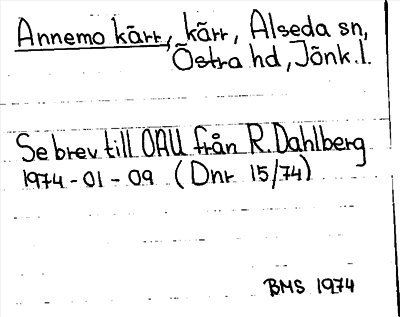 Annemo kärr, kärr, Alseda sn,
Östra hd, Jönk. l.
Se brev till OAU från R. Dahlberg
1974-01-09 (Dnr 15/74)
BMS 1974